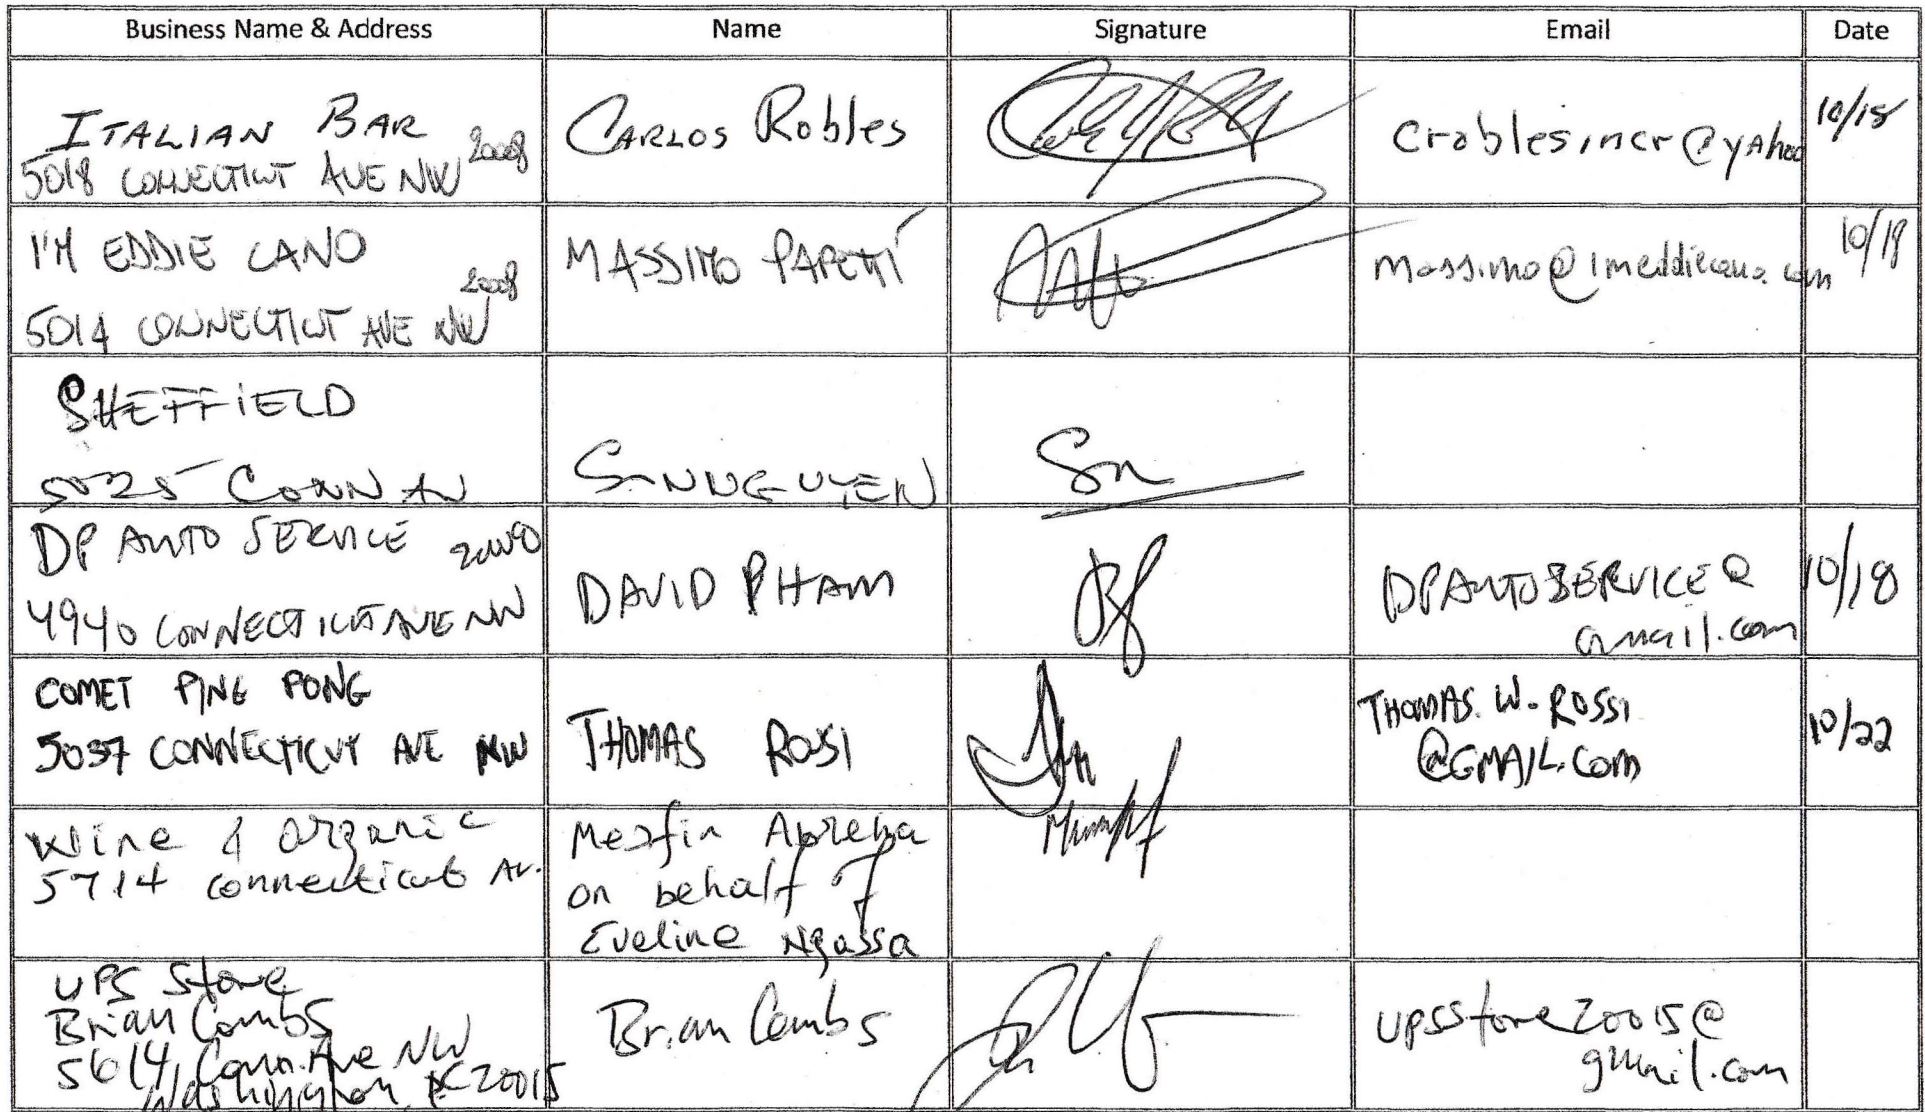 Business Name & Address Name Signature Email Date
ITALIAN BAR 20008
5018 CONNECTICUT AVE NW
CARLOS Robles
crobles,ncr@yahoo
10/18
I'M EDDIE CANO 20008
5014 CONNECTICUT AVE NW
MASSIMO PAPETTI
massimo@imeddiecano.com
10/18
SHEFFIELD
5025 CONN AV
NGUYEN
DP AUTO SERVICE
4940 CONNECTICUT AVE NW
DAVID PHAM
DPAUTOSERVICE@
gmail.com
10/18
COMET PING PONG
5037 CONNECTICUT AVE NW
THOMAS ROSSI
THOMAS.W.ROSSI
@GMAIL.COM
10/22
Wine & organic
5714 connecticut Av.
Mesfin
on behalf of
Eveline Ngassa
UPS Store
Brian Combs
5614 Conn. Ave NW
Washington, DC 20015
Brian Combs
upsstore20015@
gmail.com